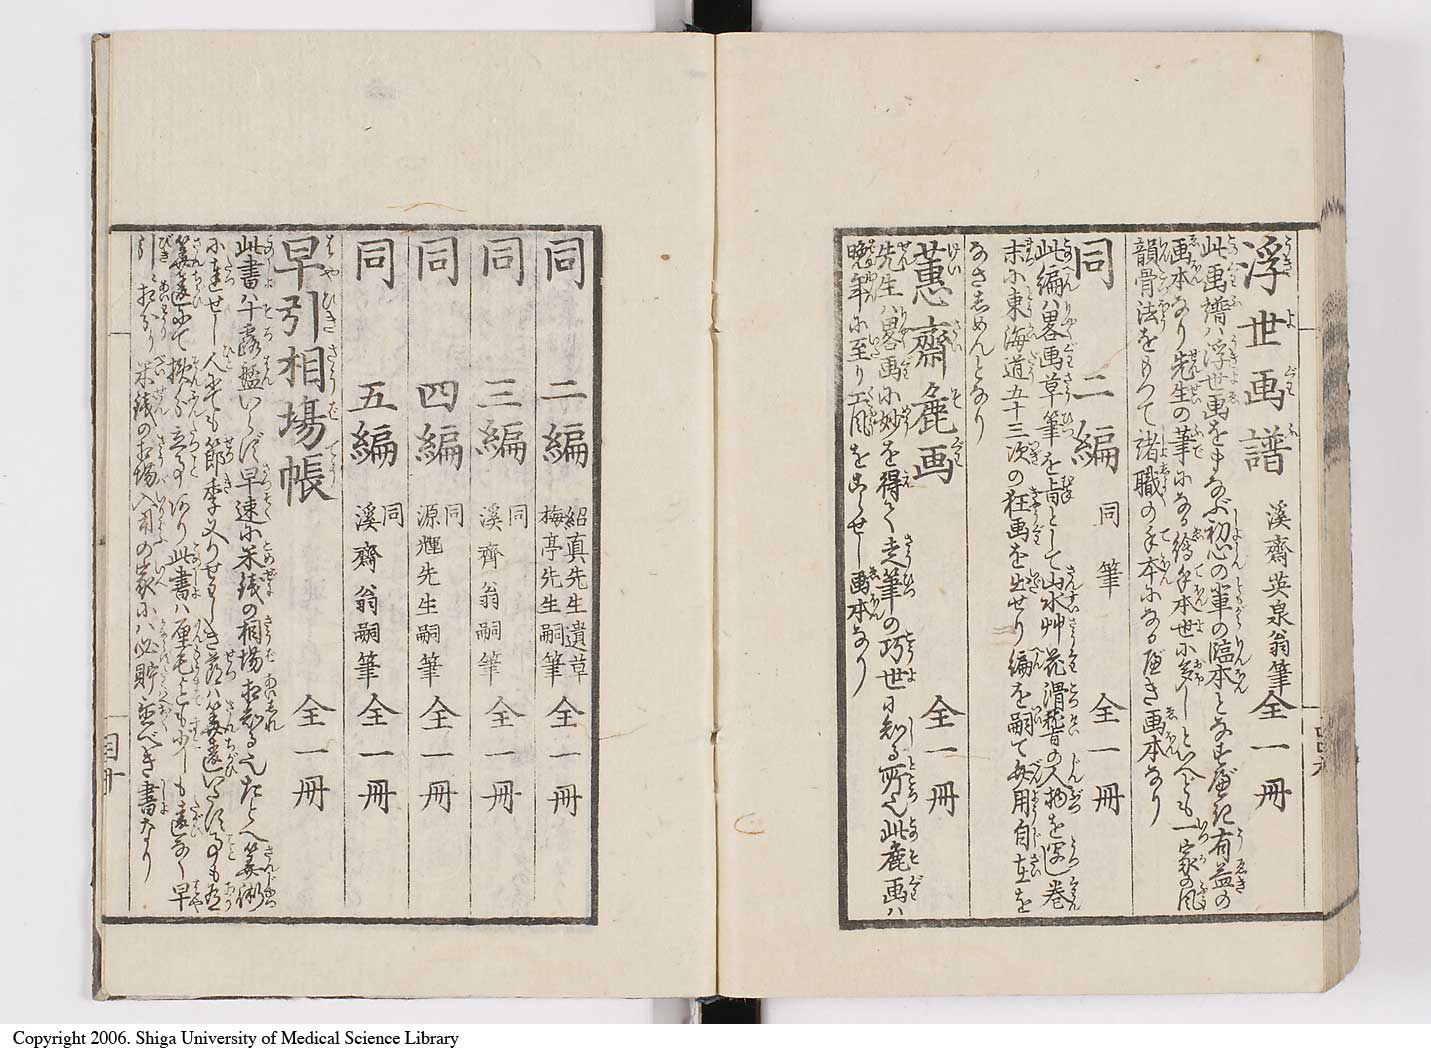 浮世画譜 溪齋英泉翁筆 全一冊
此画譜ハ浮世画をまなぶ初心の輩の臨本となすべき有益の
画本なり先生の筆になる絵手本世に多しといへども一家の風
韻骨法をもつて諸職の手本になるべき画本なり
同 二編 同筆 全一冊
此編ハ畧画草筆を旨として山水艸花滑稽の人物を写し巻
末に東海道五十三次の狂画を出せり編を嗣て無用自在を
なさしめんとなり
蕙齋麁画 全一冊
先生ハ畧画に妙を得て走筆の巧世に知る所也此麁画ハ
晩年に至り工風をこらせし画本なり
同 二編 紹真先生遺草 梅亭先生嗣筆 全一冊
同 三編 同 溪齊翁嗣筆 全一冊
同 四編 同 源麗先生嗣筆 全一冊
同 五編 同 溪齋翁嗣筆 全一冊
早引相場帳 全一冊
此書ハ十露盤いらず早速に米銭の相場相知る也たとへ算術
に達せし人にても節季
算違にて 此書ハ厘毛とも少しも違なし早
引 米銭の相場入用の家にハ必貯置べき書なり